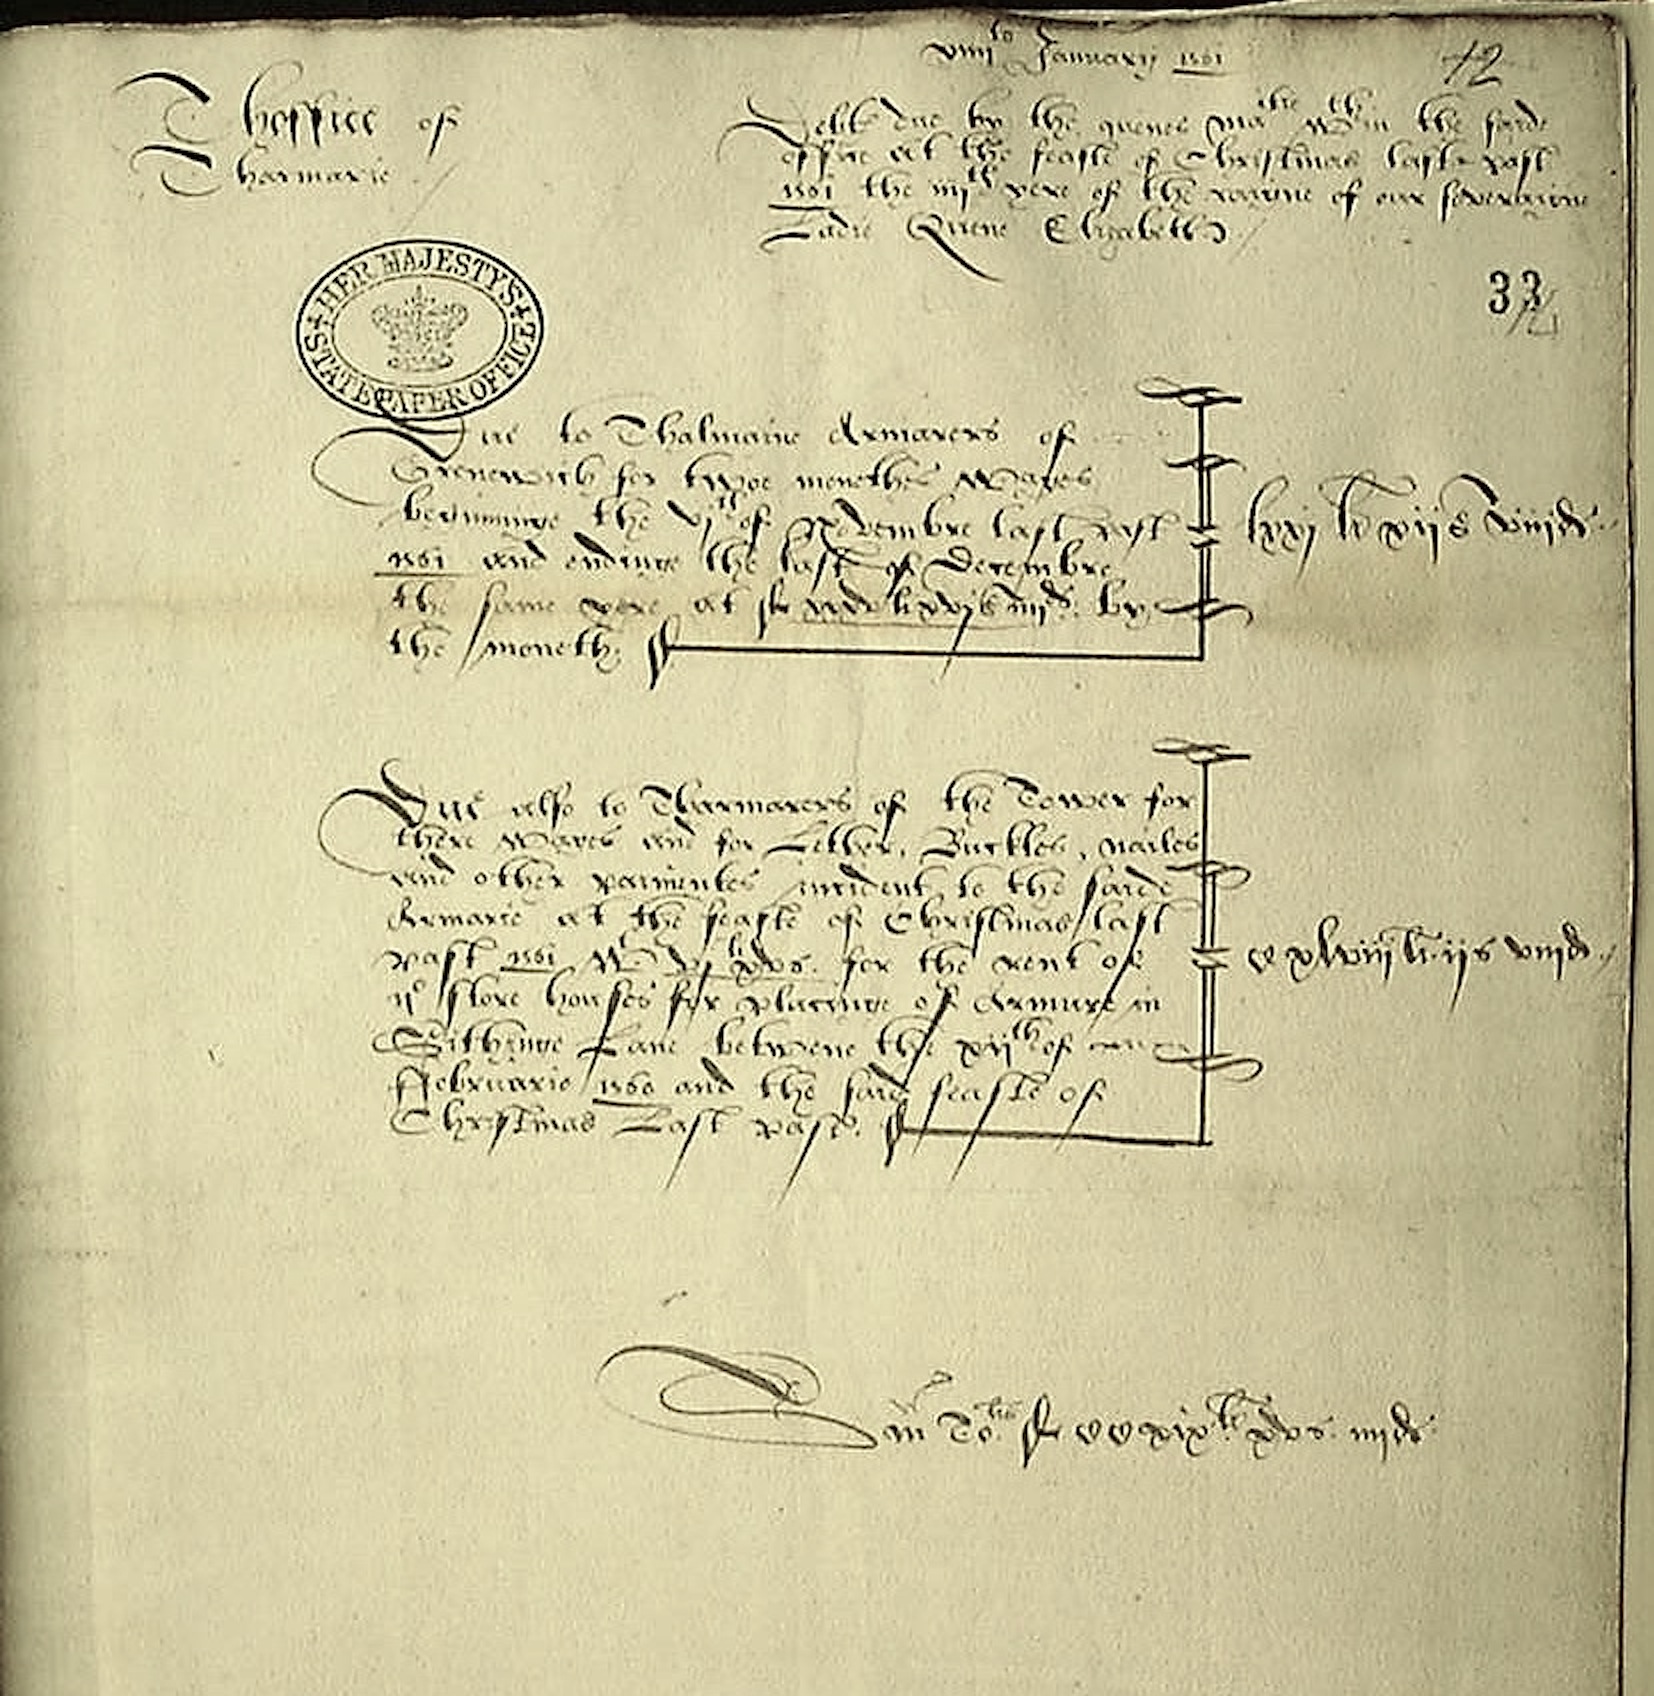 viijto Januarij 1561
12
Thoffice of
Tharmarie
Debte due by the quenes matie wthin the saide
office at the feaste of Christmas laste past
1561 the iiijth yere of the raigne of our soveraigne
Ladie Quene Elizabeth
33
HER MAJESTY'S STATE PAPER OFFICE
Due to Thalmaine Armarers of
Grenewich for twoe monethes Wages
beginninge the vjth of Novembre last past
1561 and endinge the last of Decembre
the same yere at xxxv li xvjs iiijd by
the moneth.
lxxj li xijs viijd
Due also to Tharmarers of the Tower for
there Wages and for Lether, Buckles, nailes
and other paimentes incident to the saide
Armarie at the feaste of Christmas last
past 1561 Wth vj li xvs. for the rent of
ij store houses for placinge of Armure in
Sithinge Lane betwene the xijth of
Februarie 1560 and the said feaste of
Christmas Last past.
C xlviij li ijs viijd
Sum Tolis CCxix li xvs iiijd